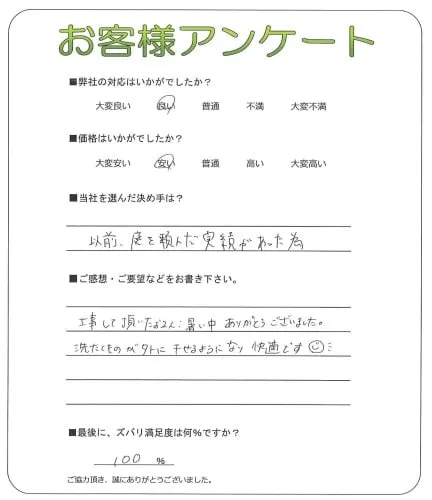 お客様アンケート
■弊社の対応はいかがでしたか？
大変良い 良い 普通 不満 大変不満
■価格はいかがでしたか？
大変安い 安い 普通 高い 大変高い
■当社を選んだ決め手は？
以前、庭を頼んだ実績があった為
■ご感想・ご要望などをお書き下さい。
工事して頂いたお2人：暑い中ありがとうございました。
洗たくものが外に干せるようになり快適です
■最後に、ズバリ満足度は何％ですか？
100 ％
ご協力頂き、誠にありがとうございました。